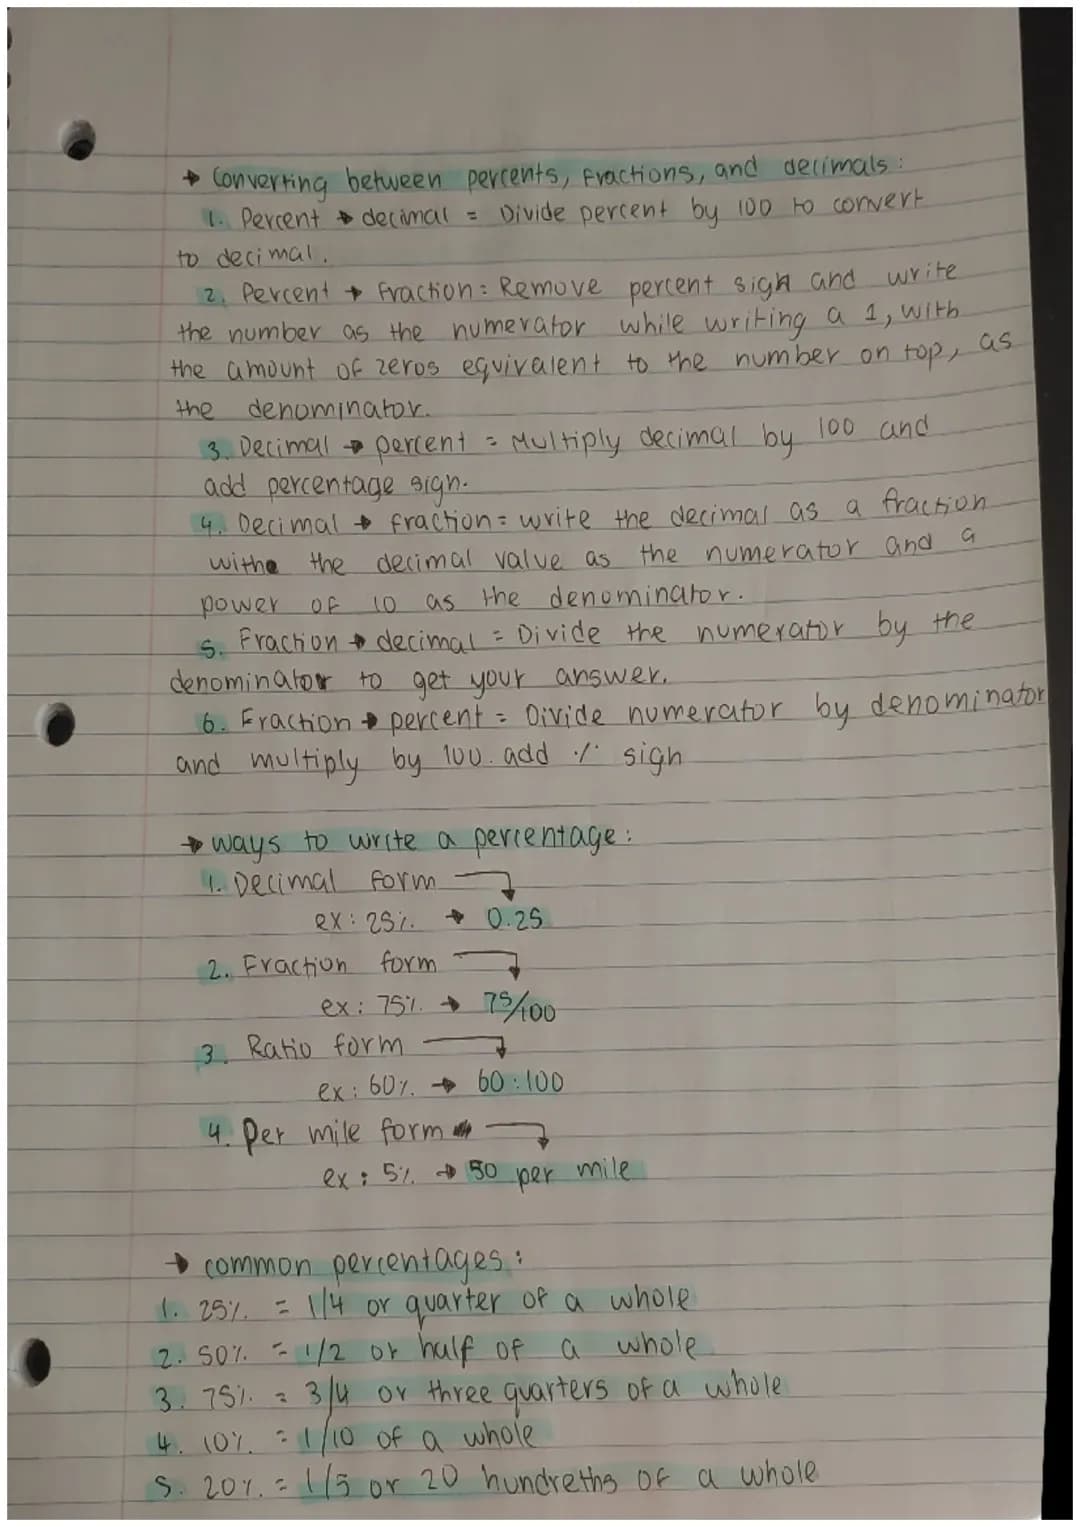 → Converting between percents, fractions, and decimals:
1. Percent → decimal = Divide percent by 100 to convert
to decimal.
2. Percent → fraction: Remove percent sign and write
the number as the numerator while writing a 1, with
the amount of zeros equivalent to the number on top, as
the denominator.
3. Decimal → percent = Multiply decimal by 100 and
add percentage sign.
4. Decimal → fraction = write the decimal as a fraction
withe the decimal value as the numerator and a
power of 10 as the denominator.
5. Fraction → decimal = Divide the numerator by the
denominator to get your answer.
6. Fraction → percent = Divide numerator by denominator
and multiply by 100. add % sign
→ ways to write a percentage:
1. Decimal form
ex: 25% → 0.25
2. Fraction form
ex: 75% → 75/100
3. Ratio form
ex: 60% → 60:100
4. Per mile form
ex: 5% → 50 per mile
→ common percentages:
1. 25% = 1/4 or quarter of a whole
2. 50% = 1/2 or half of a whole
3. 75% = 3/4 or three quarters of a whole
4. 10% = 1/10 of a whole
5. 20% = 1/5 or 20 hundreths of a whole